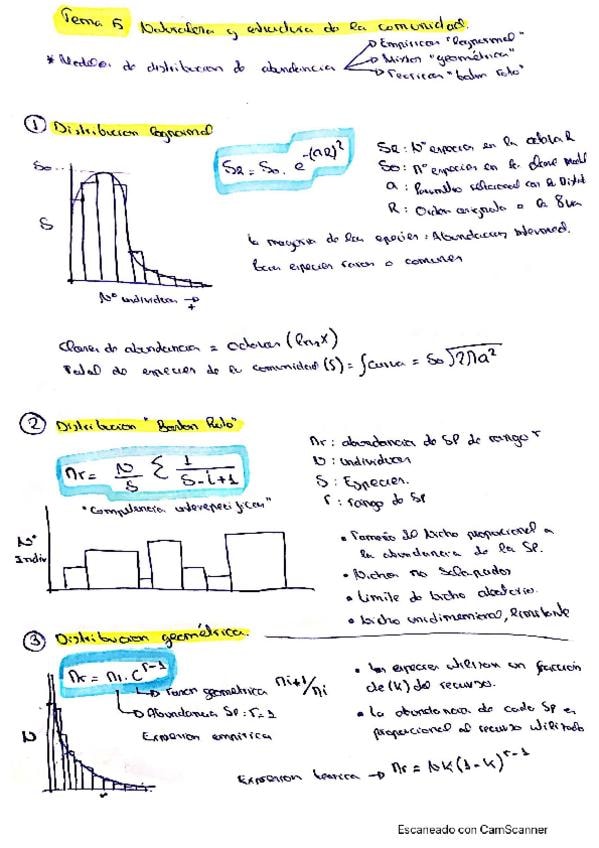 Tema 5 Naturaleza y estructura de la comunidad.
* Modelos de distribucion de abundancia
Empiricos "lognormal"
Mixtos "geométrica"
Teoricos "baston roto"
① Distribucion lognormal
SR = So. e^-(aR)²
SR: Nº especies en la octava R
So: nº especies en la clase modal
a: Parametro relacionado con la Distrib
R: Orden asignado a la
So
S
Nº individuos → +
La mayoria de las especies: Abundancias intermed.
Pocas especies raras o comunes
Clases de abundancia = octavas (
Total de especies de la comunidad (S) = ∫curva = So √2πa²
② Distribucion "Baston Roto"
nr = N/S Σ 1/S-i+1
"Competencia interespecifica"
nr: abundancia de SP de rango r
N: individuos
S: Especies.
r: rango de SP
Nº Indiv
• Tamaño del Nicho proporcional a la abundancia de la SP.
• Nichos no solapados
• Limite de nicho aleatorio.
• Nicho unidimensional,
③ Distribucion geométrica.
nr = n1. C^r-1
→ razon geometrica ni+1/ni
→ Abundancia SP: r=1
Expresion empirica
N
r
• Las especies utilizan un fraccion de (k) del recurso.
• La abundancia de cada SP es proporcional al recurso utilizado
Expresion teorica → nr = Nk(1-k)^r-1
Escaneado con CamScanner